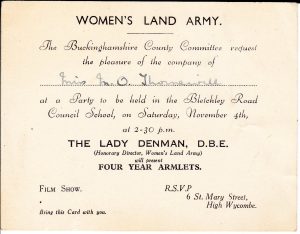 WOMEN'S LAND ARMY.
The Buckinghamshire County Committee request
the pleasure of the company of
Miss M. O.
at a Party to be held in the Bletchley Road
Council School, on Saturday, November 4th,
at 2-30 p.m.
THE LADY DENMAN, D.B.E.
(Honorary Director, Women's Land Army)
will present
FOUR YEAR ARMLETS.
FILM SHOW.
R.S.V.P
6 St. Mary Street,
High Wycombe.
Bring this Card with you.